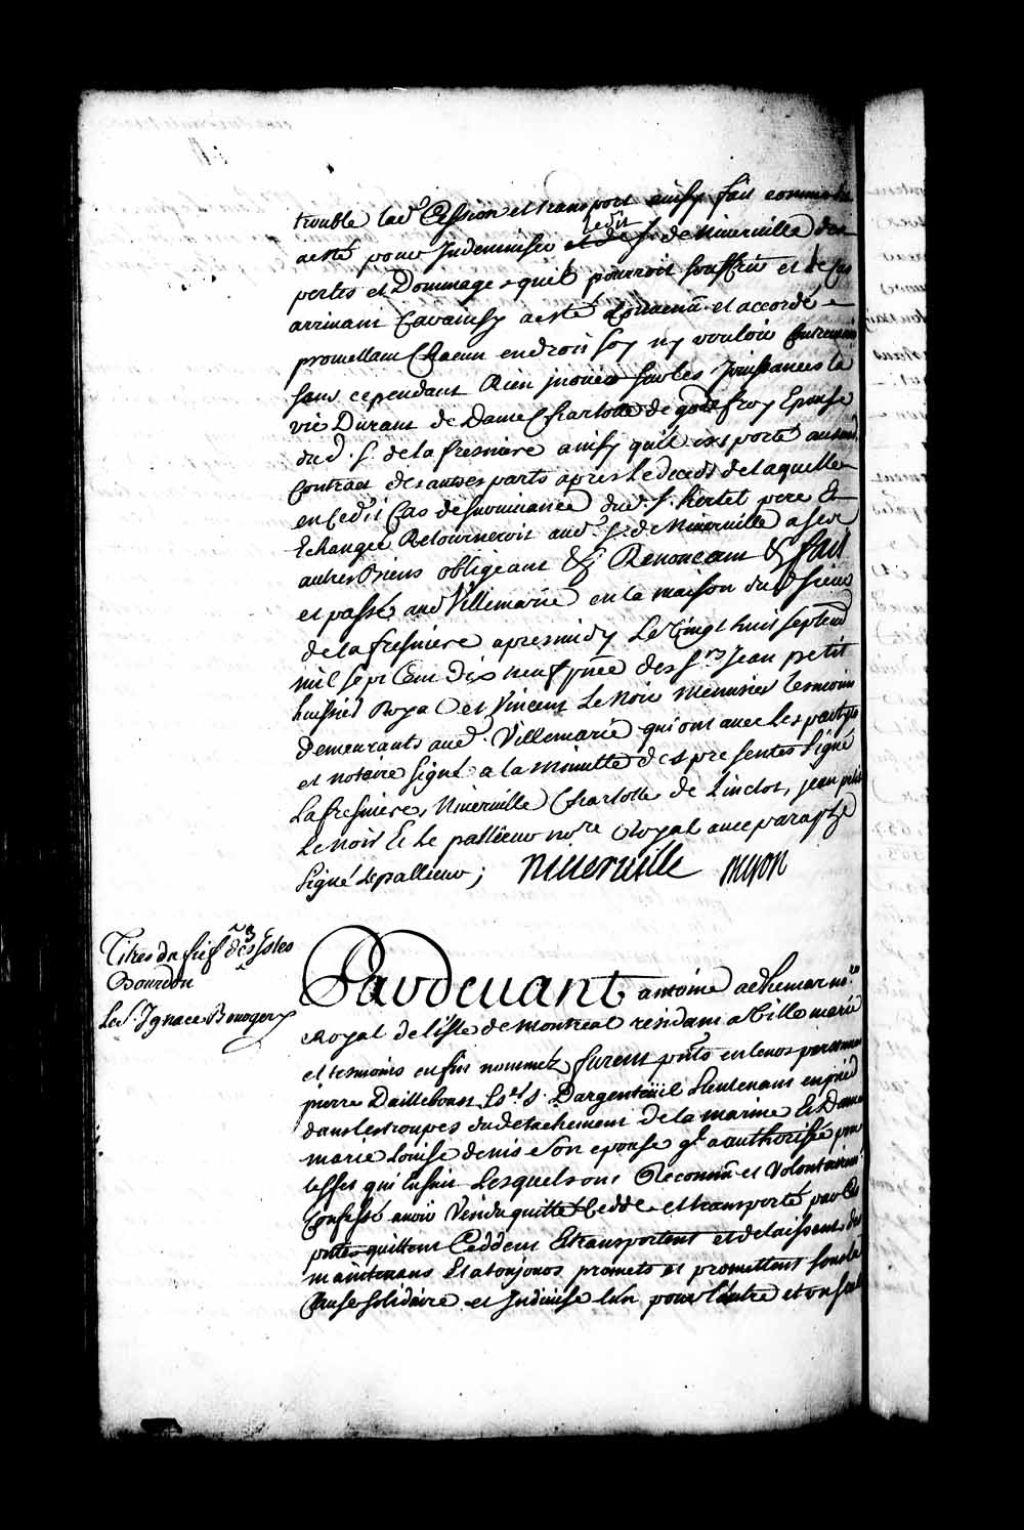 trouble lad.e Cession et transport ainsy fait comme
aesté pour Indemniser ledit s.r de Niverville des
pertes et Dommages quil pourroit souffrir et
arrivant Cavainsy aesté Convenu et accordé
promettant Chacun endroit soy ny vouloir Contrevenir
sans cependant Rien jnover sur les Jouissances la
vie Durant de Dame Charlotte de godefroy Epouse
dud. s. de la fresniere ainsy quil est porté aud.
Contract des autres parts apres le deceds de laquelle
en Ced.it Cas de survivance dud. s. hertel pere Et
Echangée Retourneroit aud. s. de Niverville a ses
autres Biens obligeant &c Renonceant &c fait
et passé aud Villemarie en la maison dud sieur
de la fresniere apresmidy Le Vingt huit septemb
mil sept Cent dix neuf pnce des s.rs Jean petit
huissier Royal et Vincent Le Noir Menuisier tesmoins
Demeurants aud. Villemarie qui ont avec les partyes
et notaire signé a la minutte des presentes Signé
Lafresniere, Niverville Charlotte de Linctot, jean petit
Le Noir Et Le pallieur no.re Royal avec paraphe
Signé Lepallieur ; Niverville
Titres du fief des Isles
Bourdon
Le s. Ignace Bouoger
Pardevant antoine adhemar no.re
Royal de lisle de Montreal residant a Ville marie
et tesmoins enfin nommez furent pnts en leurs personnes
pierre Daillebout s. Dargenteüil Lieutenant en pied
dans les troupes du detachement de la marine Et Dame
marie Louise denis Son epouse q.l a authorisée pour
leffet qui ensuit Lesquels ont Reconnu et Volontairem.
Confessé avoir Vendu quitté Cedde et transporté par Ces
pntes quittent Ceddent Et transportent et delaissent des
maintenant Et a toujours promets et promettent sous la
Clause solidaire et Indivise lun pour l'autre et un seul